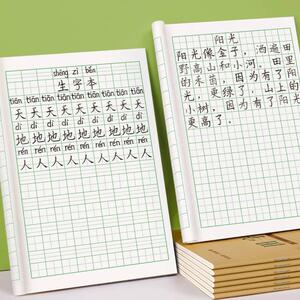 shēng zì běn
生字本
tiān tiān tiān tiān tiān tiān tiān tiān
天天天天天天天天
dì dì dì dì dì dì dì dì
地地地地地地地地
rén rén rén rén rén rén rén rén
人人人人人人人人
阳光
阳光像金子，洒遍田
野高山和小河。田里
的禾苗，因为有了阳
光，更绿了，山上的
小树，因为有了阳光，
更高了。